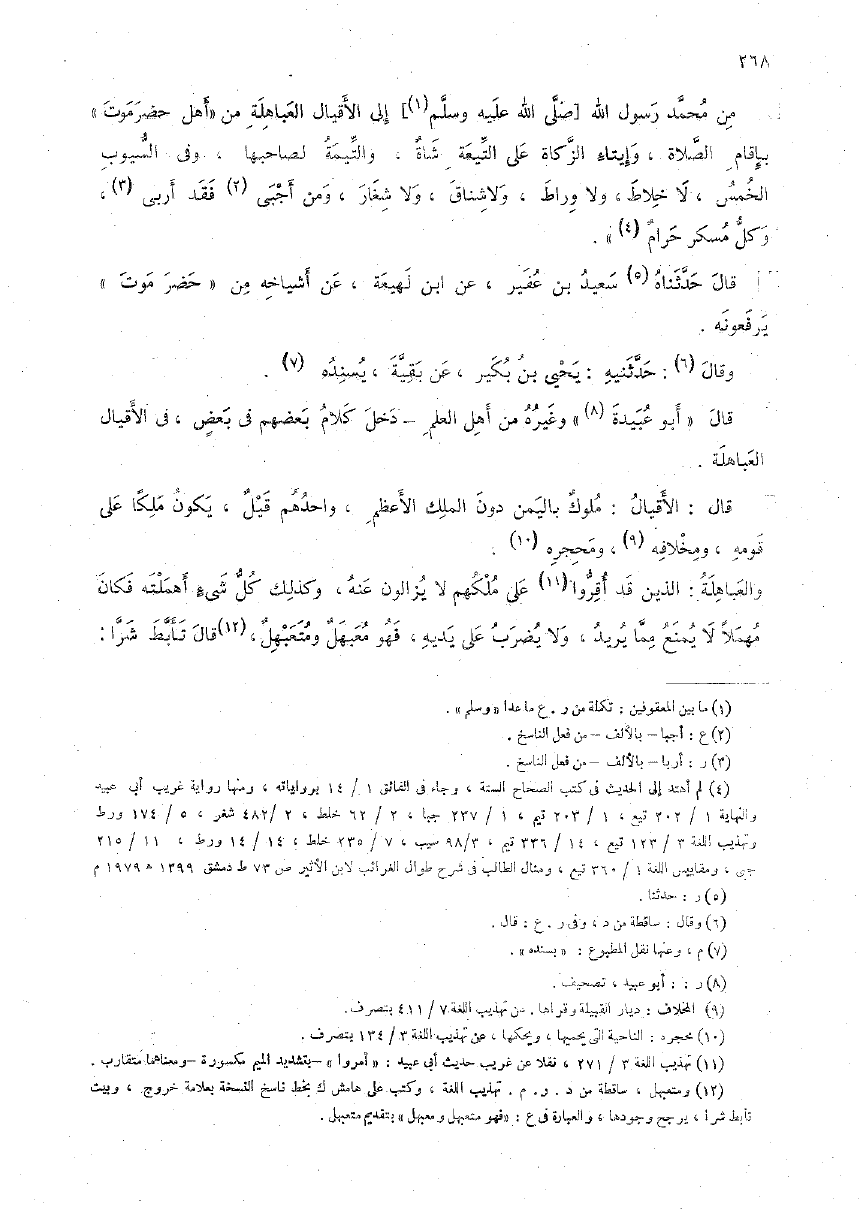 ٢٦٨
مِن مُحمَّد رَسول الله [صَلَّى الله علَيه وسلَّم(١)] إلى الأَقيال العَباهِلَةِ من «أَهل حضرَمَوتَ»
بإِقامِ الصَّلاة ، وَإيتاءِ الزَّكاة عَلى التِّيعَة شَاةٌ ، والتِّيمَةُ لصاحبها ، وفى السُّيوبِ
الخُمسُ ، لَا خِلاطَ ، ولا وِراطَ ، وَلاشناقَ ، وَلا شِغَارَ ، وَمن أَجْبَى (٢) فَقَد أَربى (٣) ،
وَكلُّ مُسكر حَرامٌ (٤) » .
قالَ حَدَّثَناهُ (٥) سَعيدُ بن عُفَير ، عن ابن لَهيعَة ، عَن أَشياخه مِن « حَضرَ مَوتَ »
يَرفَعونَه .
وقالَ (٦) : حَدَّثَنيهِ : يَحْيى بنُ بُكَير ، عَن بَقيَّةَ ، يُسنِدُه (٧) .
قالَ « أَبو عُبَيدَةَ (٨) » وغَيرُهُ من أَهلِ العلمِ – دَخلَ كَلامُ بَعضهم فى بَعضٍ ، فى الأَقيال
العَباهلَة .
قال : الأَقيالُ : مُلوكٌ باليَمن دونَ الملِك الأَعظمِ ، واحدُهُم قَيْلٌ ، يَكونُ مَلِكًا عَلى
قَومهِ ، ومِخْلافِه (٩) ، ومَحجِرِه (١٠) .
والعَباهِلَةُ : الذين قَد أُقِرُّوا (١١) عَلى مُلْكُهم لا يُزالون عَنهُ ، وكذلِك كُلُّ شَىءٍ أَهملتَه فَكانَ
مُهمَلاً لَا يُمنَعُ مِمَّا يُريدُ ، وَلا يُضرَبُ عَلى يَديهِ ، فَهُو مُعَبهَلٌ ومُتَعَبْهِلٌ ، (١٢) قالَ تَأَبَّطَ شَرًّا :
(١) ما بين المعقوفين : تكملة من ر . ع ما عدا « وسلم » .
(٢) ع : أجبا – بالألف – من فعل الناسخ .
(٣) ر : أربا – بالألف – من فعل الناسخ .
(٤) لم أهتد إلى الحديث فى كتب الصحاح الستة ، وجاء فى الفائق ١ / ١٤ برواياته ، ومنها رواية غريب أبى عبيد
والنهاية ١ / ٢٠٢ تيع ، ١ / ٢٠٣ تيم ، ١ / ٢٣٧ جبا ، ٢ / ٦٢ خلط ، ٢ / ٤٨٢ شغر ، ٥ / ١٧٤ ورط
وتهذيب اللغة ٣ / ١٢٣ تيع ، ١٤ / ٣٣٦ تيم ، ٩٨/٣ سيب ، ٧ / ٢٣٥ خلط ، ١٤ / ١٤ ورط ، ١١ / ٢١٥
جبى ، ومقاييس اللغة ١ / ٣٦٠ تيع ، ومثال الطالب فى شرح طوال الغرائب لابن الأثير ص ٧٣ ط دمشق ١٣٩٩ هـ ١٩٧٩ م
(٥) ر : حدثنا .
(٦) وقال : ساقطة من د ، وفى ر . ع : قال .
(٧) م ، وعنها نقل المطبوع : « بسنده » .
(٨) ر : : أبو عبيد ، تصحيف .
(٩) المخلاف : ديار القبيلة وقراها . من تهذيب اللغة ٧ / ٤١١ بتصرف .
(١٠) محجره : الناحية التى يحميها ، ويحكمها ، عن تهذيب اللغة ٣ / ١٣٤ بتصرف .
(١١) تهذيب اللغة ٣ / ٢٧١ ، نقلا عن غريب حديث أبى عبيد : « أمروا » –بتشديد الميم مكسورة –ومعناهما متقارب .
(١٢) ومتعبهل ، ساقطة من د . و . م . تهذيب اللغة ، وكتب على هامش ك بخط ناسخ النسخة بعلامة خروج ، وبيت
تأبط شرا ، يرجح وجودها ، والعبارة فى ع : «فهو متعبهل ومعبهل» بتقديم متعبهل .